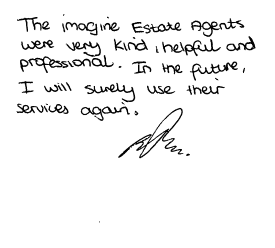 The imagine Estate Agents
were very kind, helpful and
professional. In the future,
I will surely use their
services again.